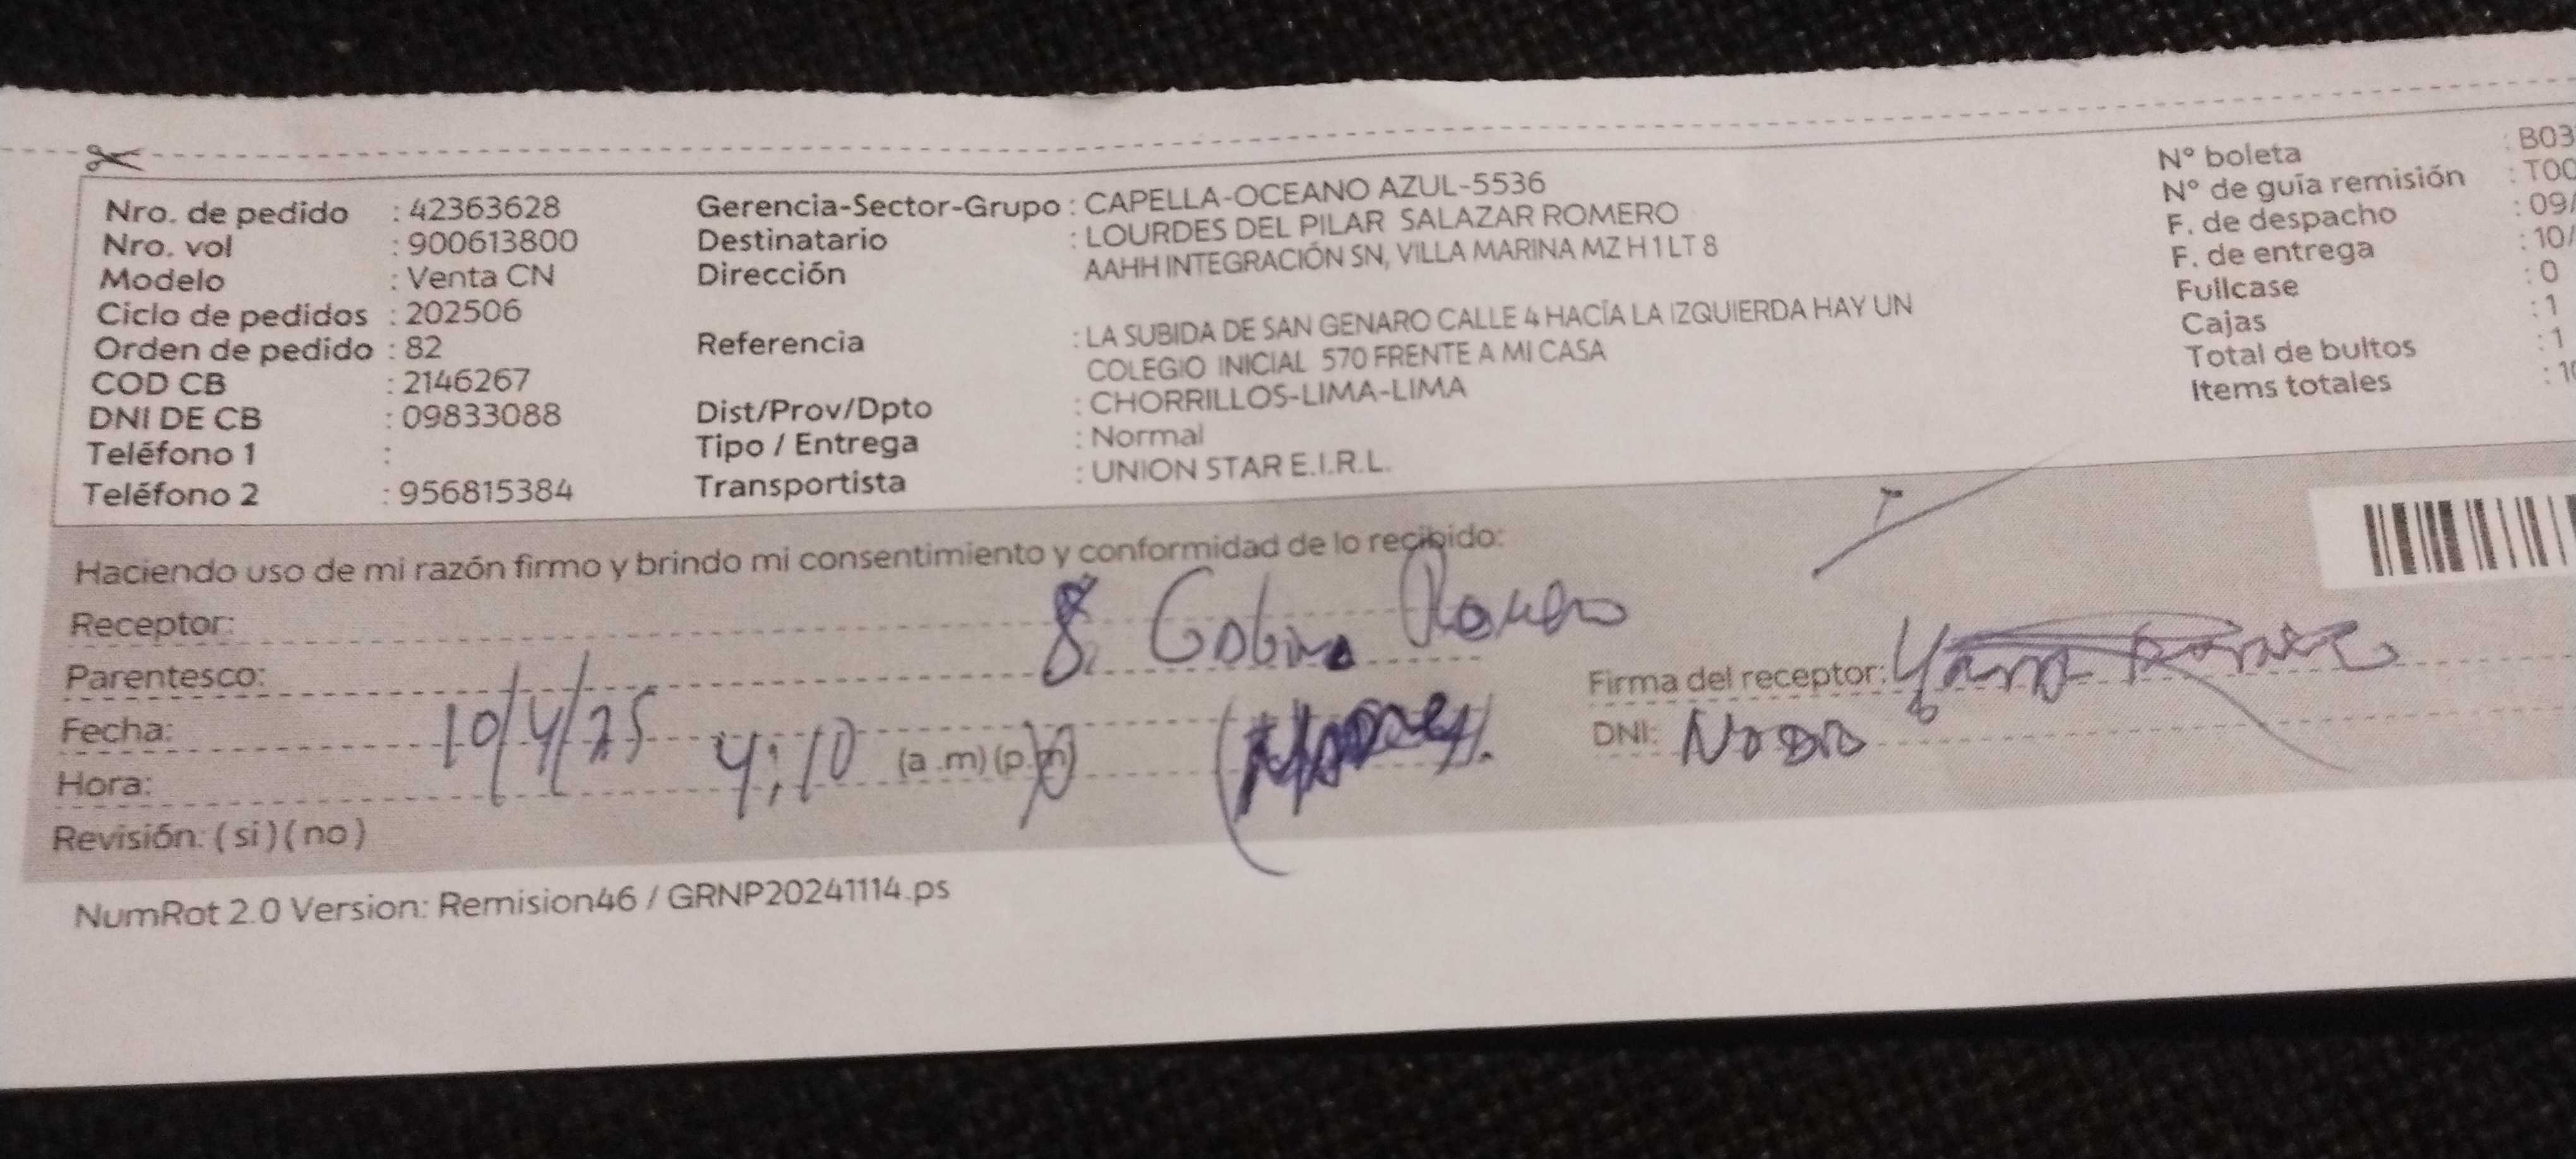 Nro. de pedido : 42363628
Nro. vol : 900613800
Modelo : Venta CN
Ciclo de pedidos : 202506
Orden de pedido : 82
COD CB : 2146267
DNI DE CB : 09833088
Teléfono 1 :
Teléfono 2 : 956815384
Gerencia-Sector-Grupo : CAPELLA-OCEANO AZUL-5536
Destinatario : LOURDES DEL PILAR SALAZAR ROMERO
Dirección AAHH INTEGRACIÓN SN, VILLA MARINA MZ H 1 LT 8
Referencia : LA SUBIDA DE SAN GENARO CALLE 4 HACÍA LA IZQUIERDA HAY UN
COLEGIO INICIAL 570 FRENTE A MI CASA
Dist/Prov/Dpto : CHORRILLOS-LIMA-LIMA
Tipo / Entrega : Normal
Transportista : UNION STAR E.I.R.L.
N° boleta : B03
N° de guía remisión : T00
F. de despacho : 09/
F. de entrega : 10/
Fullcase : 0
Cajas : 1
Total de bultos : 1
Items totales : 10
Haciendo uso de mi razón firmo y brindo mi consentimiento y conformidad de lo recibido:
Receptor:
Parentesco:
Fecha: 10/4/25
Hora: 4:10 (a .m) (p.m)
Revisión: ( si ) ( no )
Firma del receptor:
DNI:
NumRot 2.0 Version: Remision46 / GRNP20241114.ps